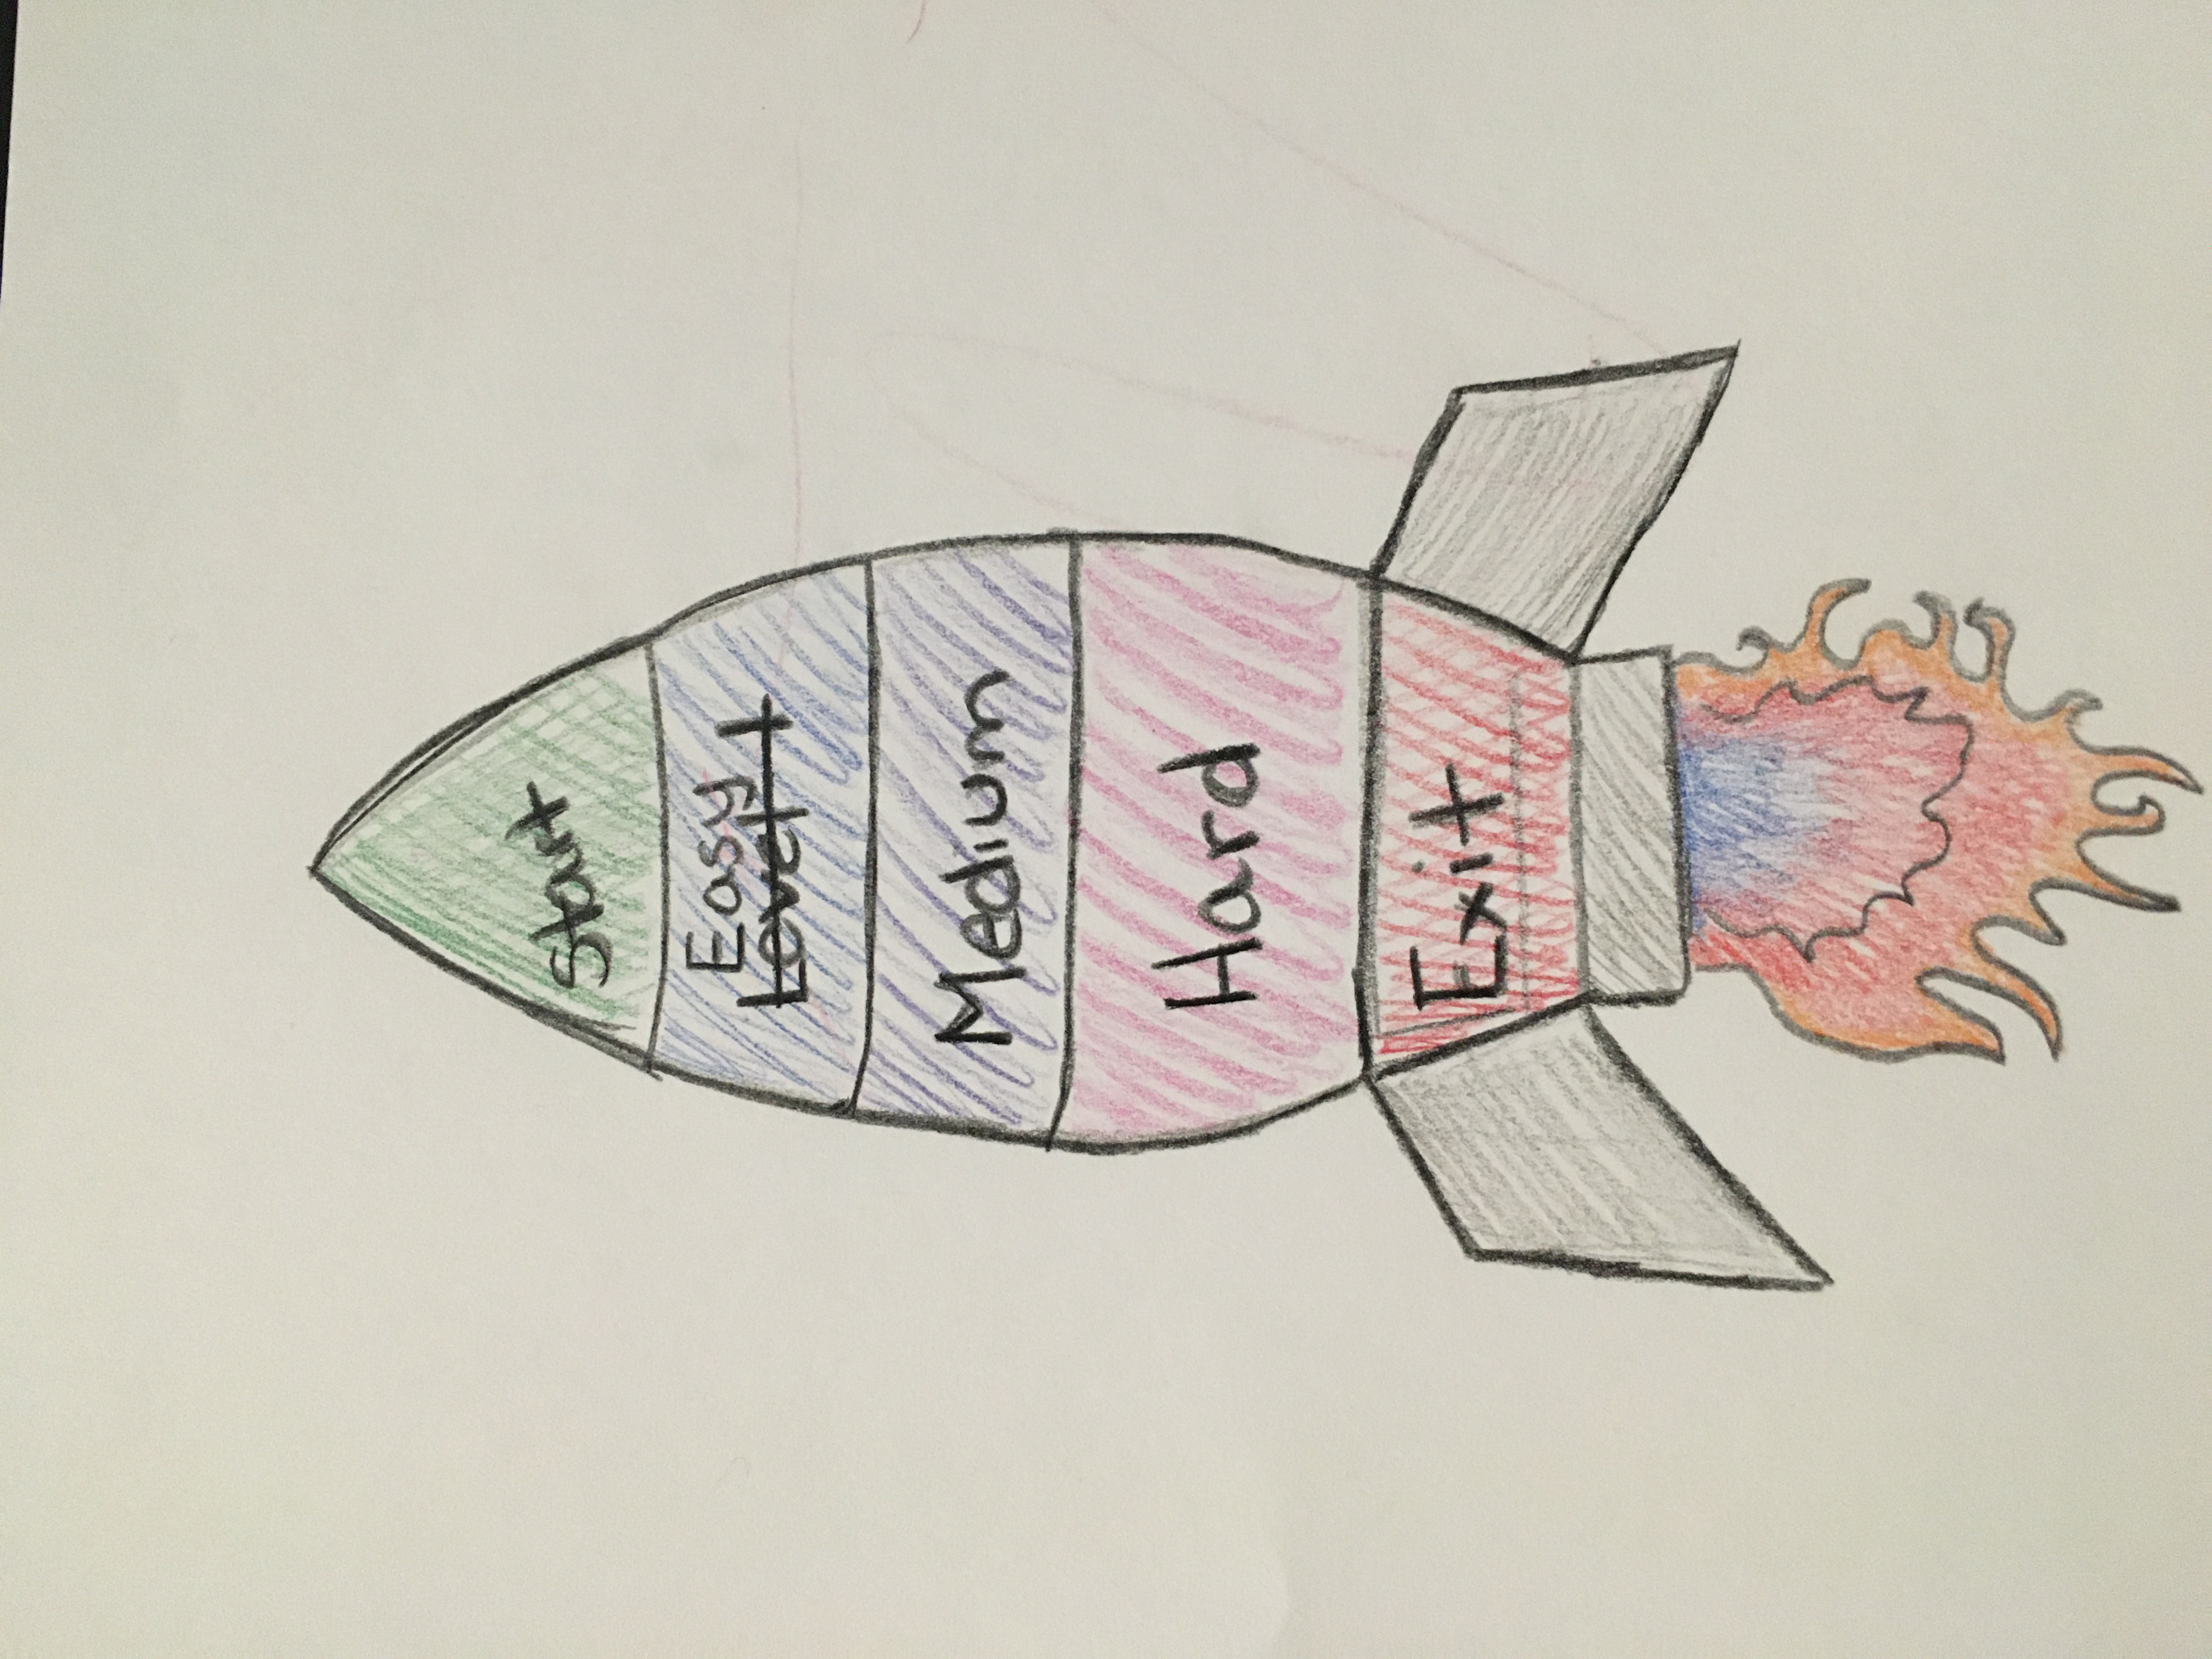 Start
Easy
Level 1
Medium
Hard
Exit